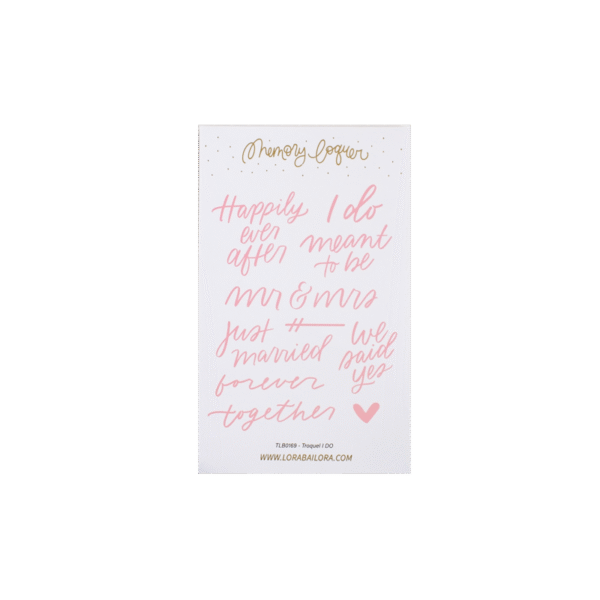 Memory loquer
Happily
ever
after
I do
meant
to be
mr & mrs
just
married
#
We
said
yes
forever
together
TLB0169 - Troquel I DO
WWW.LORABAILORA.COM